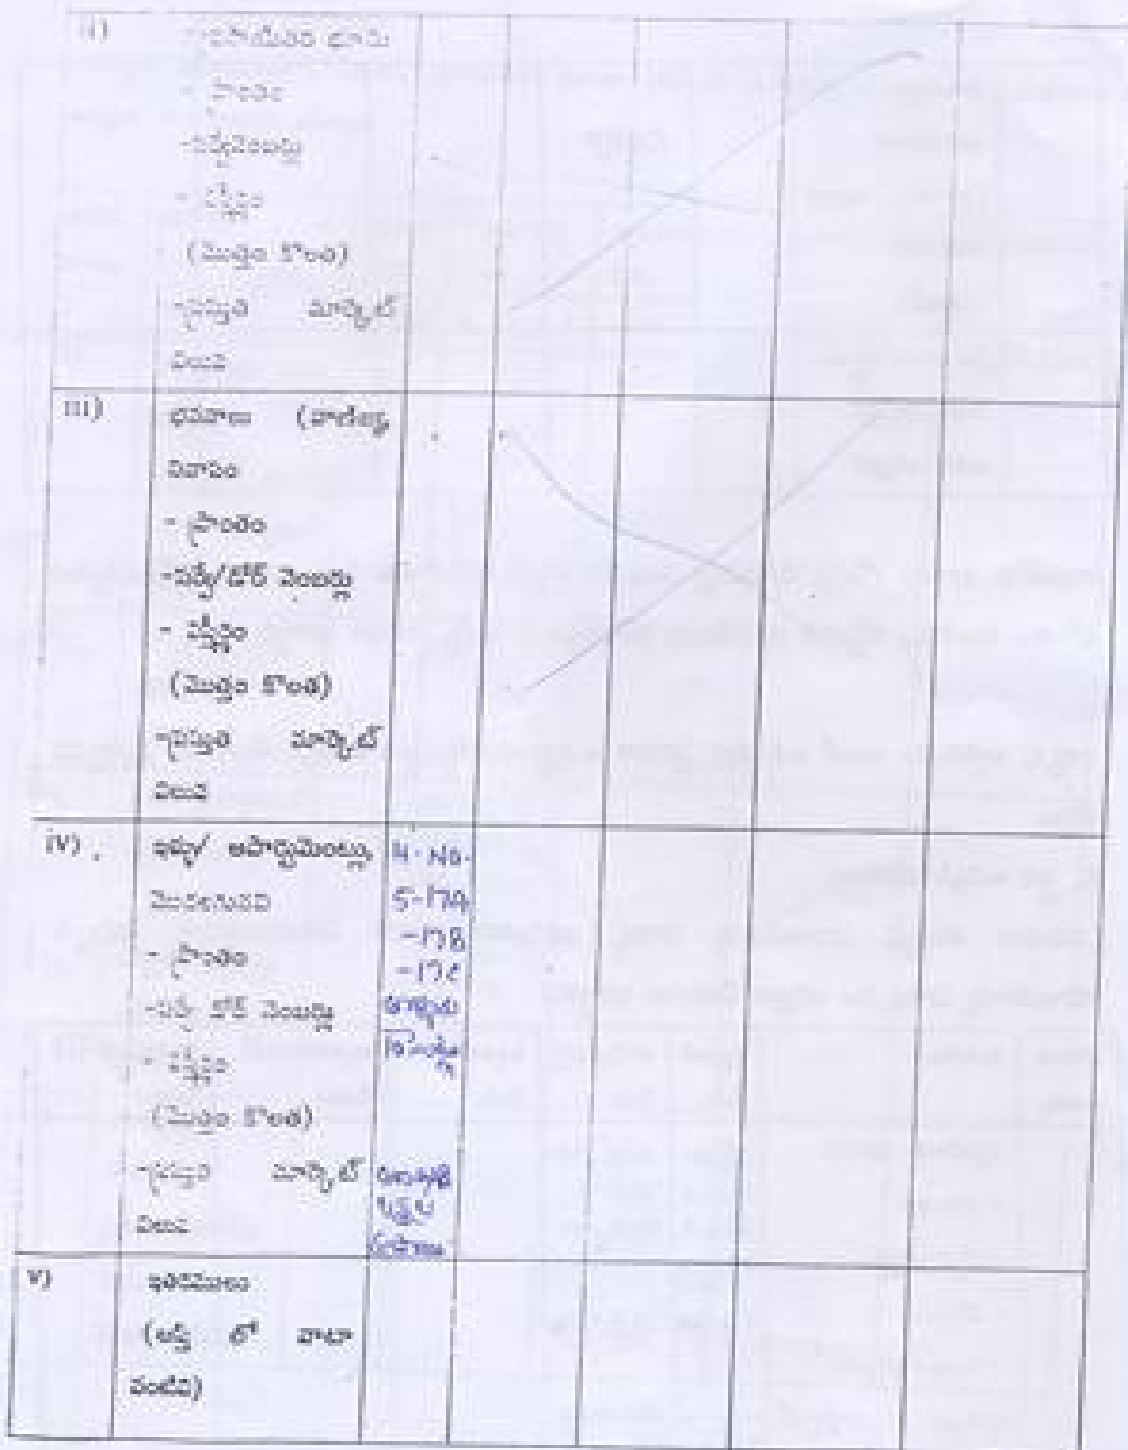 ii) -వ్యవసాయేతర భూమి
- ప్రాంతం
-సర్వేనెంబర్లు
- విస్తీర్ణం
(మొత్తం కొలత)
-ప్రస్తుత మార్కెట్
విలువ
iii) భవనాలు (వాణిజ్య
నివాసం
- ప్రాంతం
-సర్వే/డోర్ నెంబర్లు
- విస్తీర్ణం
(మొత్తం కొలత)
-ప్రస్తుత మార్కెట్
విలువ
iv) ఇళ్ళు/ అపార్టుమెంట్లు, H.No.
మొదలగునవి 5-17A
-17B
- ప్రాంతం -17C
-సర్వే డోర్ నెంబర్లు
- విస్తీర్ణం
(మొత్తం కొలత)
-ప్రస్తుత మార్కెట్
విలువ
v) ఇతరములు
(ఆస్తి లో వాటా
వంటివి)